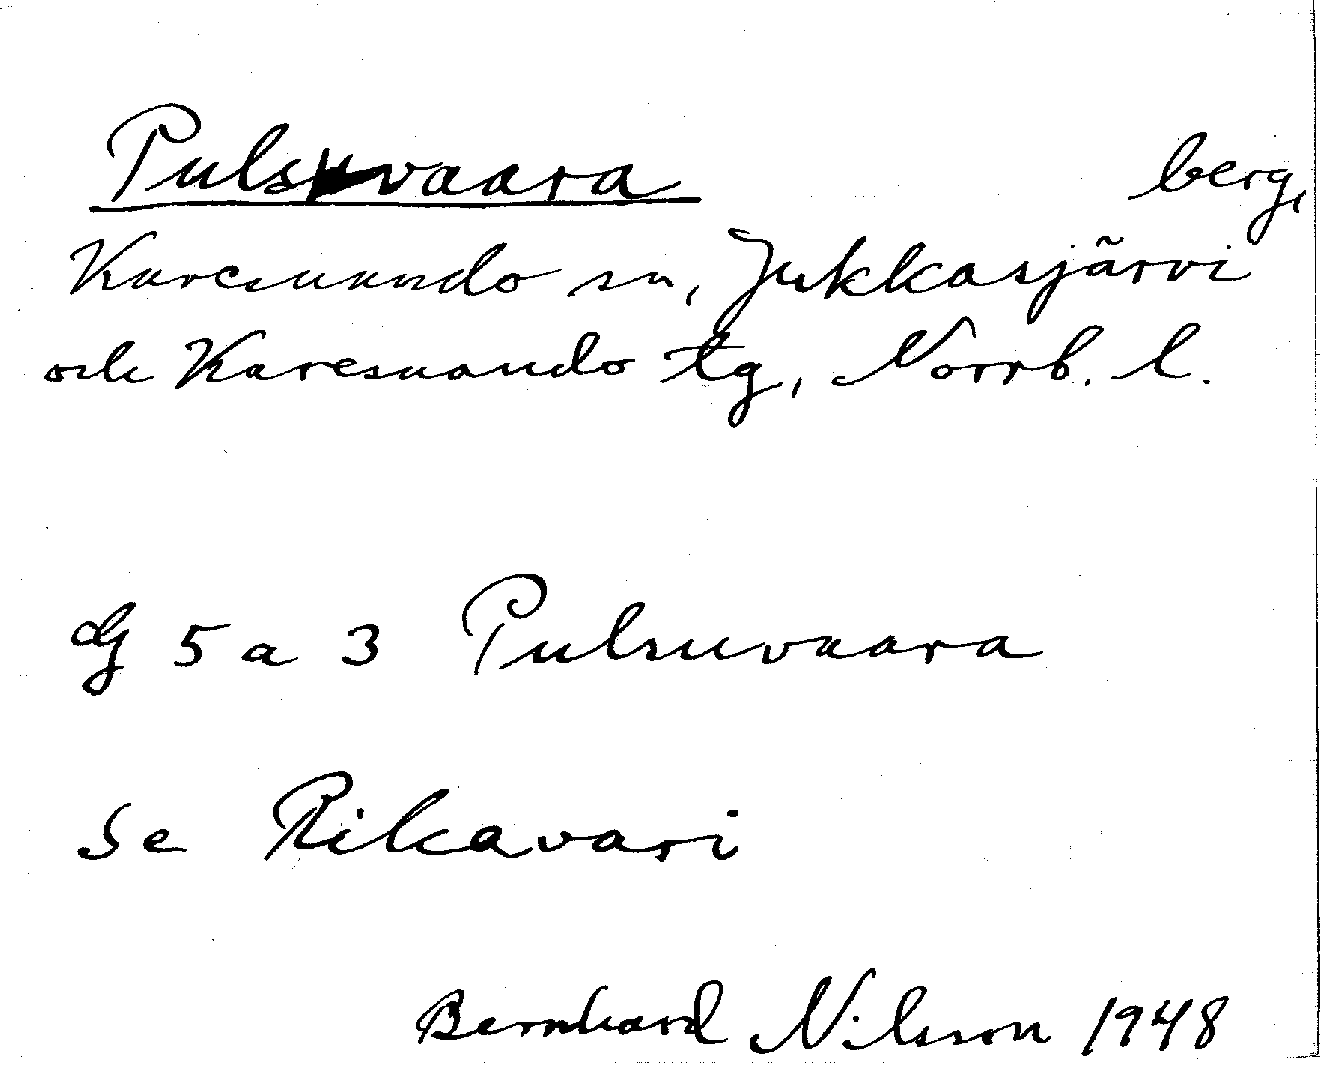 Pulsuvaara berg,
Karesuando sn, Jukkasjärvi
och Karesuando tg, Norrb. l.
dg 5 a 3 Pulsuvaara
Se Rikavari
Bernhard Nilsson 1948